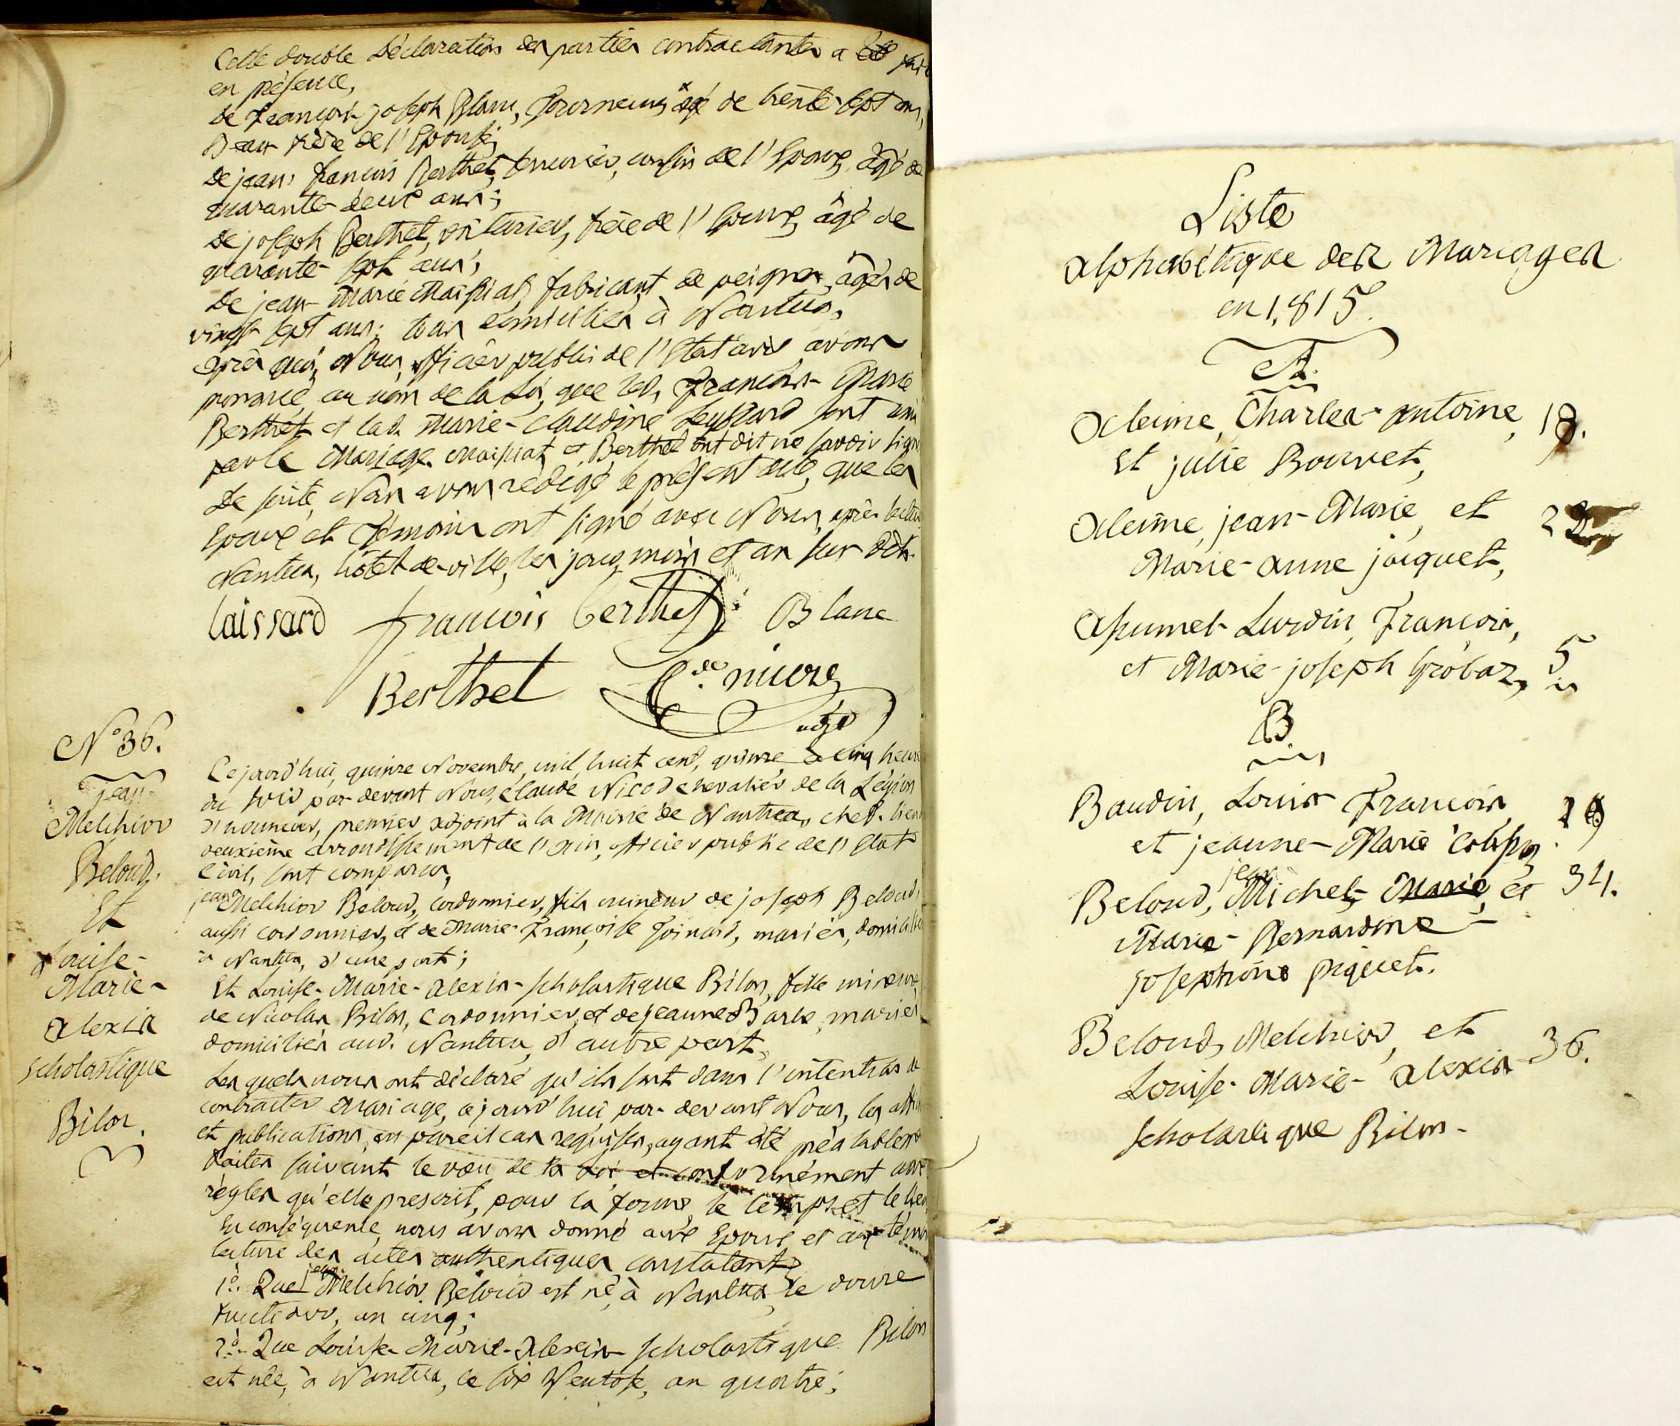 Cette double Déclaration des parties contractantes a été faite
en présence,
De françois-joseph Blanc, Tourneur, âgé de trente-sept ans,
Beau frère de l'Epouse;
De jean-françois Berthet, cousin de l'Epoux, âgé de
quarante-deux ans;
De joseph Berthet, frère de l'Epoux, âgé de
quarante-sept ans;
De jean-Marie Maissiat, fabricant de peignes, âgés de
vingt-sept ans; tous domiciliés à Nantua,
après quoi, Nous, officier public de l'Etat civil, avons
prononcé au nom de la Loi, que led. François-Marie
Berthet et lad. Marie-Claudine sont unis
par le Mariage. Maissiat et Berthet ont dit ne savoir signer
De suite, Nous avons rédigé le présent acte, que les
Epoux et Témoins ont signé avec Nous, après lecture
Nantua, hôtel-de-ville, les jour, mois et an sur dits.
laissard françois berthet Blanc
Berthet
adj.
N.º 36.
Jean
Melchior
Beloud,
Et
Louise-
Marie-
alexis
scholastique
Bilon.
Cejourd'hui, quinze Novembre, mil huit cent, quinze à cinq heures
du soir par-devant Nous, Claude Nicod chevalier de la Légion
d'honneur, premier adjoint à la Mairie de Nantua, chef-lieu
deuxième arrondissement de l'ain, officier public de l'Etat
Civil, sont comparus,
jean Melchior Beloud, cordonnier, fils mineur de joseph Beloud,
aussi cordonnier, et de Marie-Françoise Joinard, mariés, domiciliés
à Nantua, d'une part;
Et Louise-Marie-alexis-scholastique Bilon, fille mineure
de Nicolas Bilon, Cordonnier, et de jeanne Barbe, mariés
domiciliés aud. Nantua, d'autre part,
Lesquels nous ont déclaré qu'ils sont dans l'intention de
contracter Mariage, cejourd'hui par-devant Nous, les
et publications en pareil cas requises, ayant été préalablement
faites suivant le vœu de la Loi et conformément aux
règles qu'elle prescrit, pour la forme, le temps et le lieu
En conséquence, nous avons donné aux Epoux et aux témoins
lecture des actes authentiques constatant;
1.º Que jean Melchior Beloud est né, à Nantua, le douze
fructidor, an cinq;
2.º Que Louise-Marie-alexis-scholastique Bilon
est née, à Nantua, le six Ventose, an quatre;
Liste
alphabétique des Mariages
en 1,815.
A.
Aleime, Charles-antoine,
Et julie Bouvet,
Aleime, jean-Marie, et
Marie-anne jacquet,
22
Lurdin, François,
et Marie-joseph Gröbaz, 5
B.
Baudin, Louis-François
et jeanne-Marie
Beloud, jean Michel-Marie, et 34.
Marie-Bernardine-
josephine piquet.
Beloud, Melchior, et 36.
Louise-Marie-alexis
scholastique Bilon-